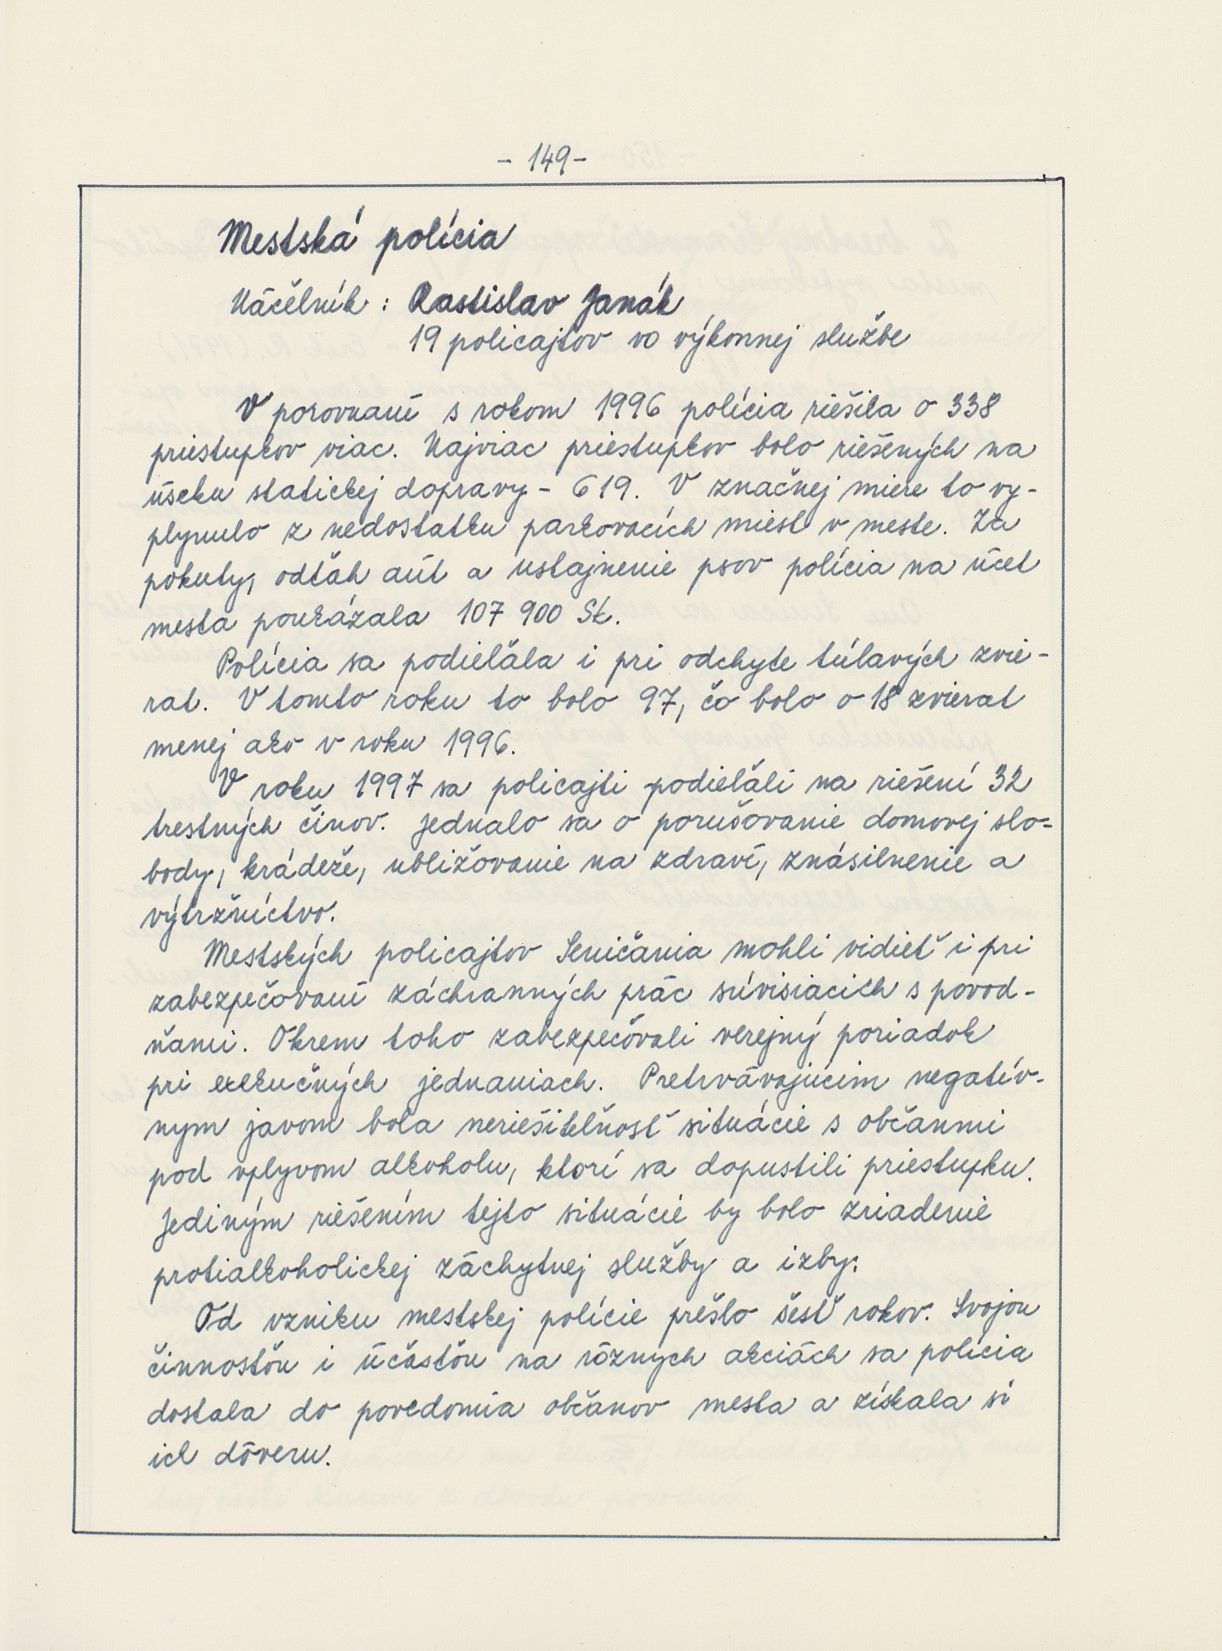 - 149-
Mestská polícia
Náčelník : Rastislav Janák
19 policajtov vo výkonnej službe
V porovnaní s rokom 1996 polícia riešila o 338
priestupkov viac. Najviac priestupkov bolo riešených na
úseku statickej dopravy - 619. V značnej miere to vy-
plynulo z nedostatku parkovacích miest v meste. Za
pokuty, odťah áut a ustajnenie psov polícia na účet
mesta poukázala 107 900 Sk.
Polícia sa podieľala i pri odchyte túlavých zvie-
rat. V tomto roku to bolo 97, čo bolo o 18 zvierat
menej ako v roku 1996.
V roku 1997 sa policajti podieľali na riešení 32
trestných činov. Jednalo sa o porušovanie domovej slo-
body, krádeže, ubližovanie na zdraví, znásilnenie a
výtržníctvo.
Mestských policajtov Seničania mohli vidieť i pri
zabezpečovaní záchranných prác súvisiacich s povod-
ňami. Okrem toho zabezpečovali verejný poriadok
pri exekučných jednaniach. Pretrvávajúcim negatív-
nym javom bola neriešiteľnosť situácie s občanmi
pod vplyvom alkoholu, ktorí sa dopustili priestupku.
Jediným riešením tejto situácie by bolo zriadenie
protialkoholickej záchytnej služby a izby.
Od vzniku mestskej polície prešlo šesť rokov. Svojou
činnosťou i účasťou na rôznych akciách sa polícia
dostala do povedomia občanov mesta a získala si
ich dôveru.